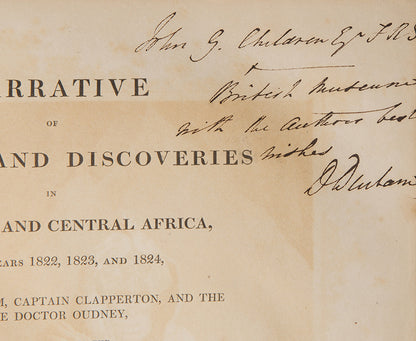 John G. Children Esqr F R S
British Museum
with the Authors best
wishes
D Denham
ARRATIVE
OF
AND DISCOVERIES
IN
AND CENTRAL AFRICA,
EARS 1822, 1823, AND 1824,
M, CAPTAIN CLAPPERTON, AND THE
E DOCTOR OUDNEY,